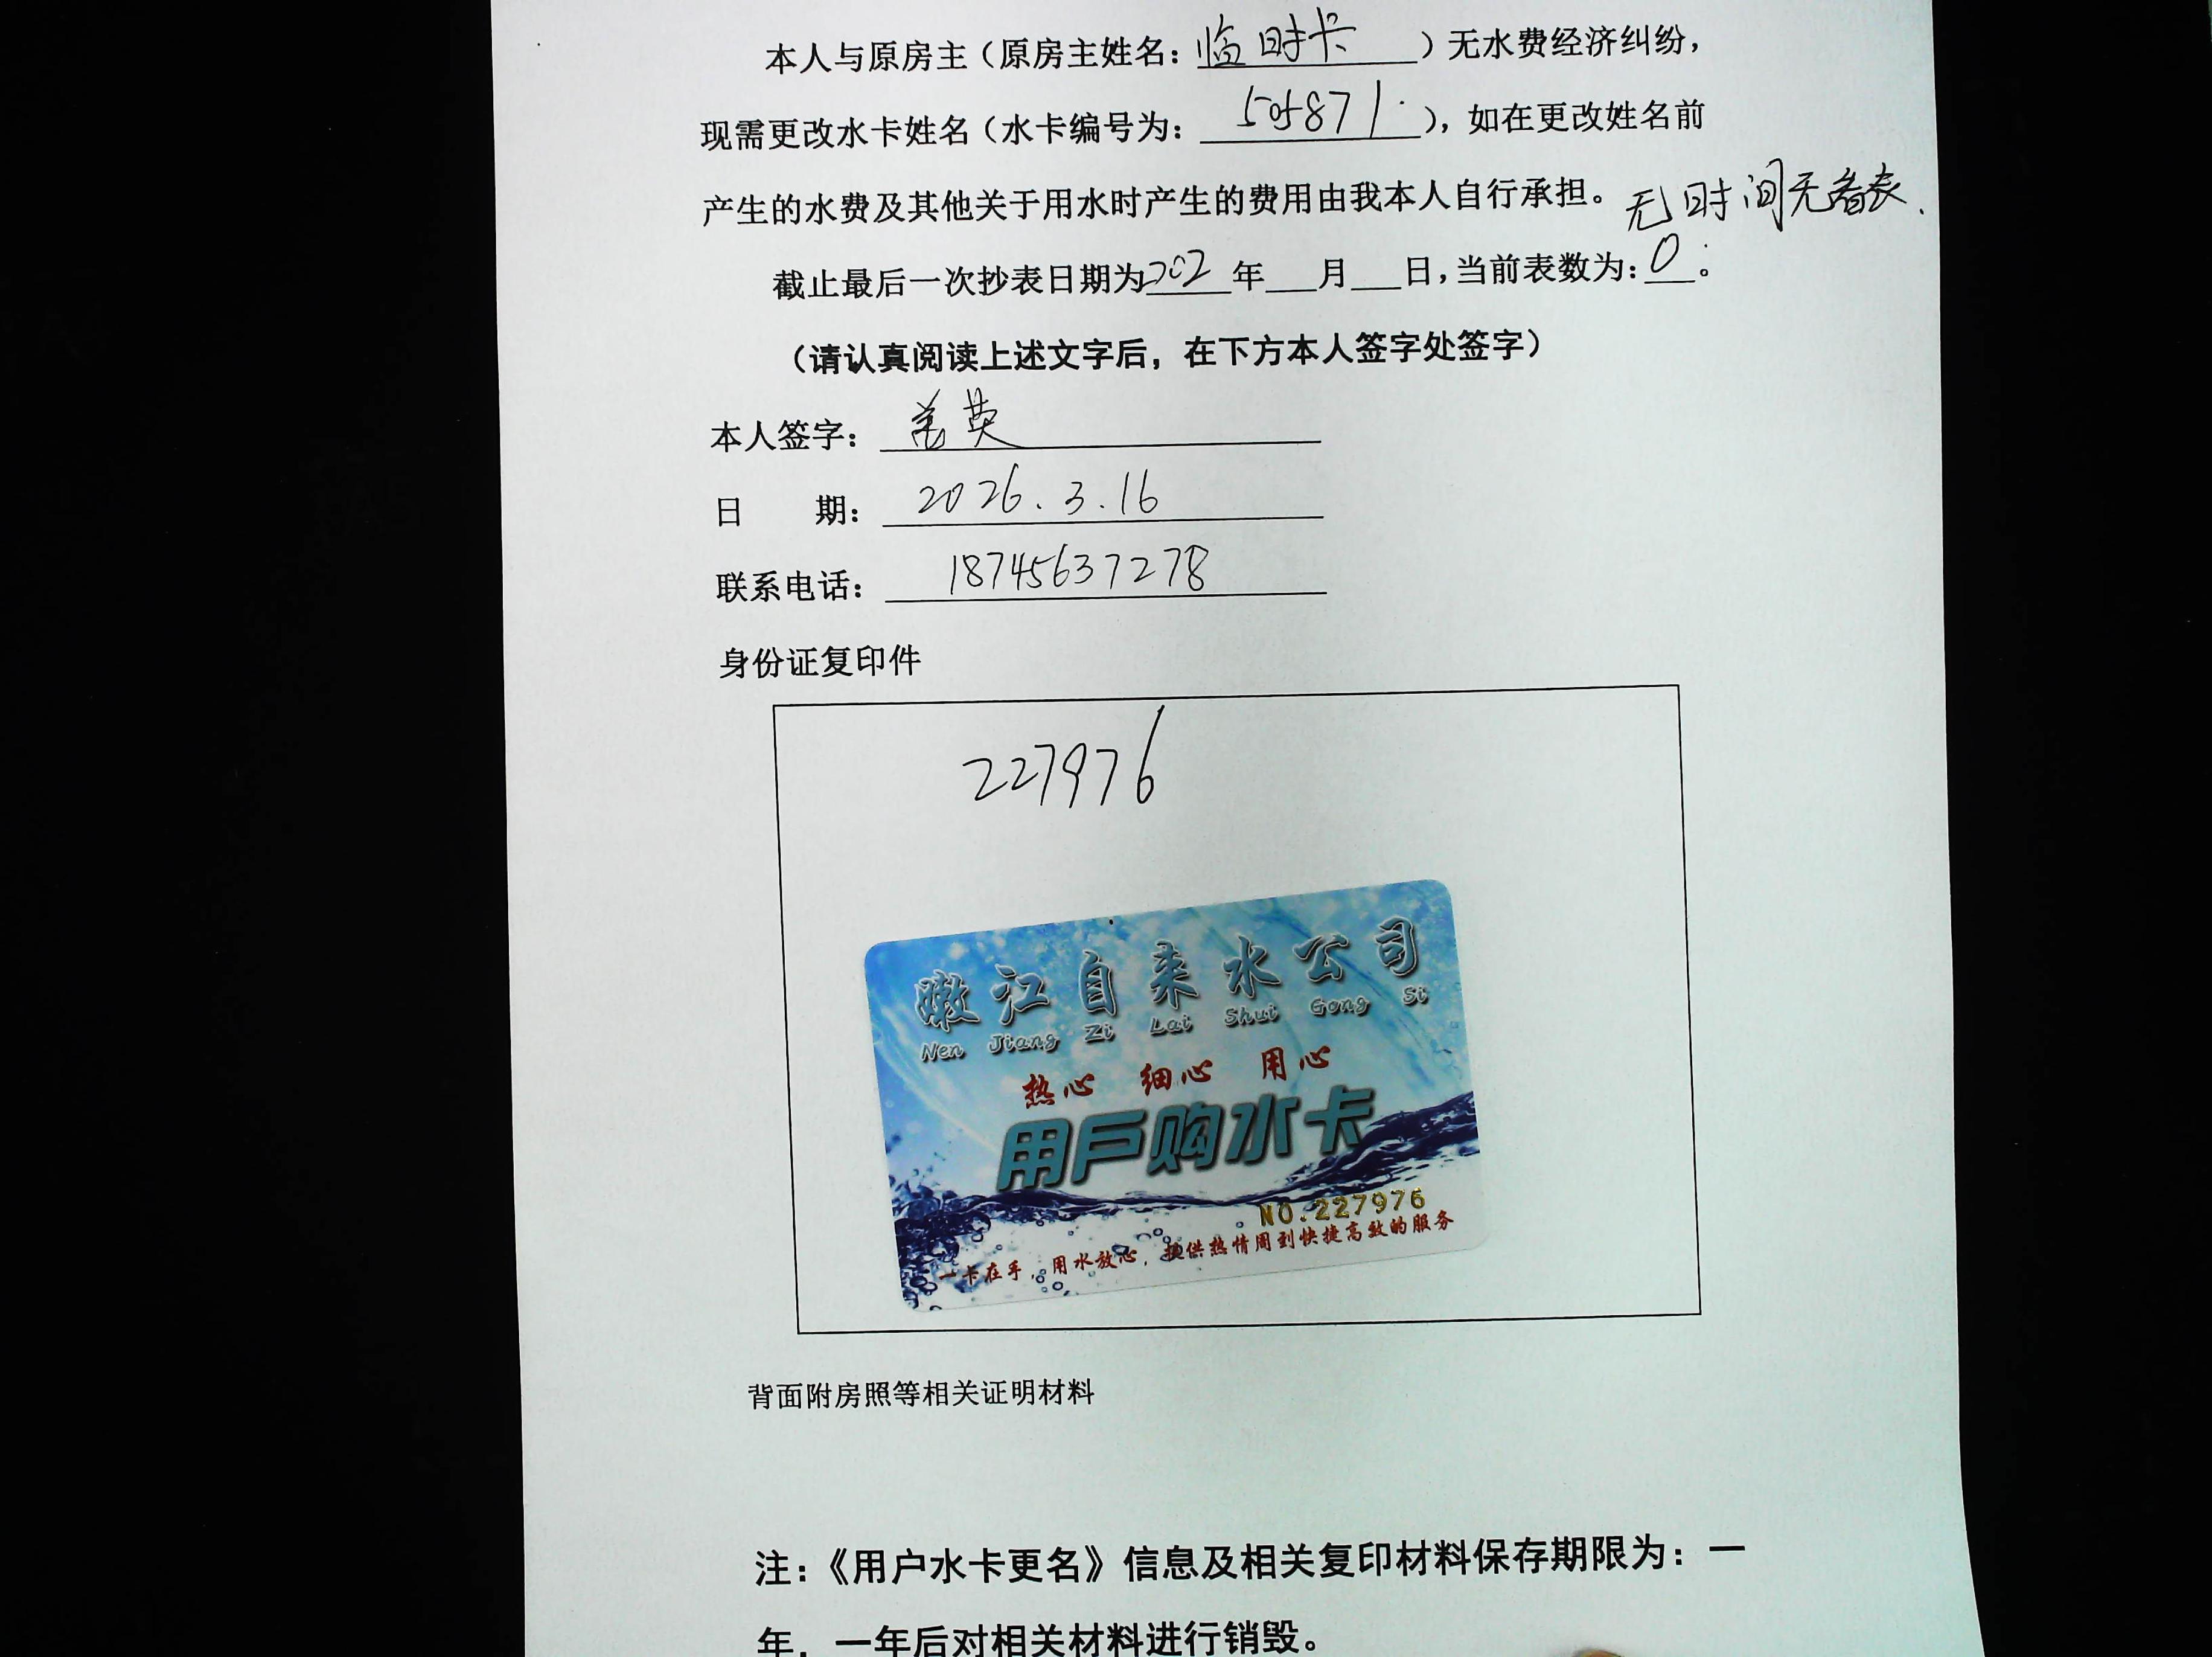 本人与原房主（原房主姓名：临时卡）无水费经济纠纷，
现需更改水卡姓名（水卡编号为：505871），如在更改姓名前
产生的水费及其他关于用水时产生的费用由我本人自行承担。无时间无看表.
截止最后一次抄表日期为202年 月 日，当前表数为：0。
（请认真阅读上述文字后，在下方本人签字处签字）
本人签字： 英
日 期：2026.3.16
联系电话：18745637278
身份证复印件
227976
嫩江自来水公司
Nen Jiang Zi Lai Shui Gong Si
热心 细心 用心
用戶购水卡
NO.227976
一卡在手，用水放心，提供热情周到快捷高效的服务
背面附房照等相关证明材料
注：《用户水卡更名》信息及相关复印材料保存期限为：一
年，一年后对相关材料进行销毁。